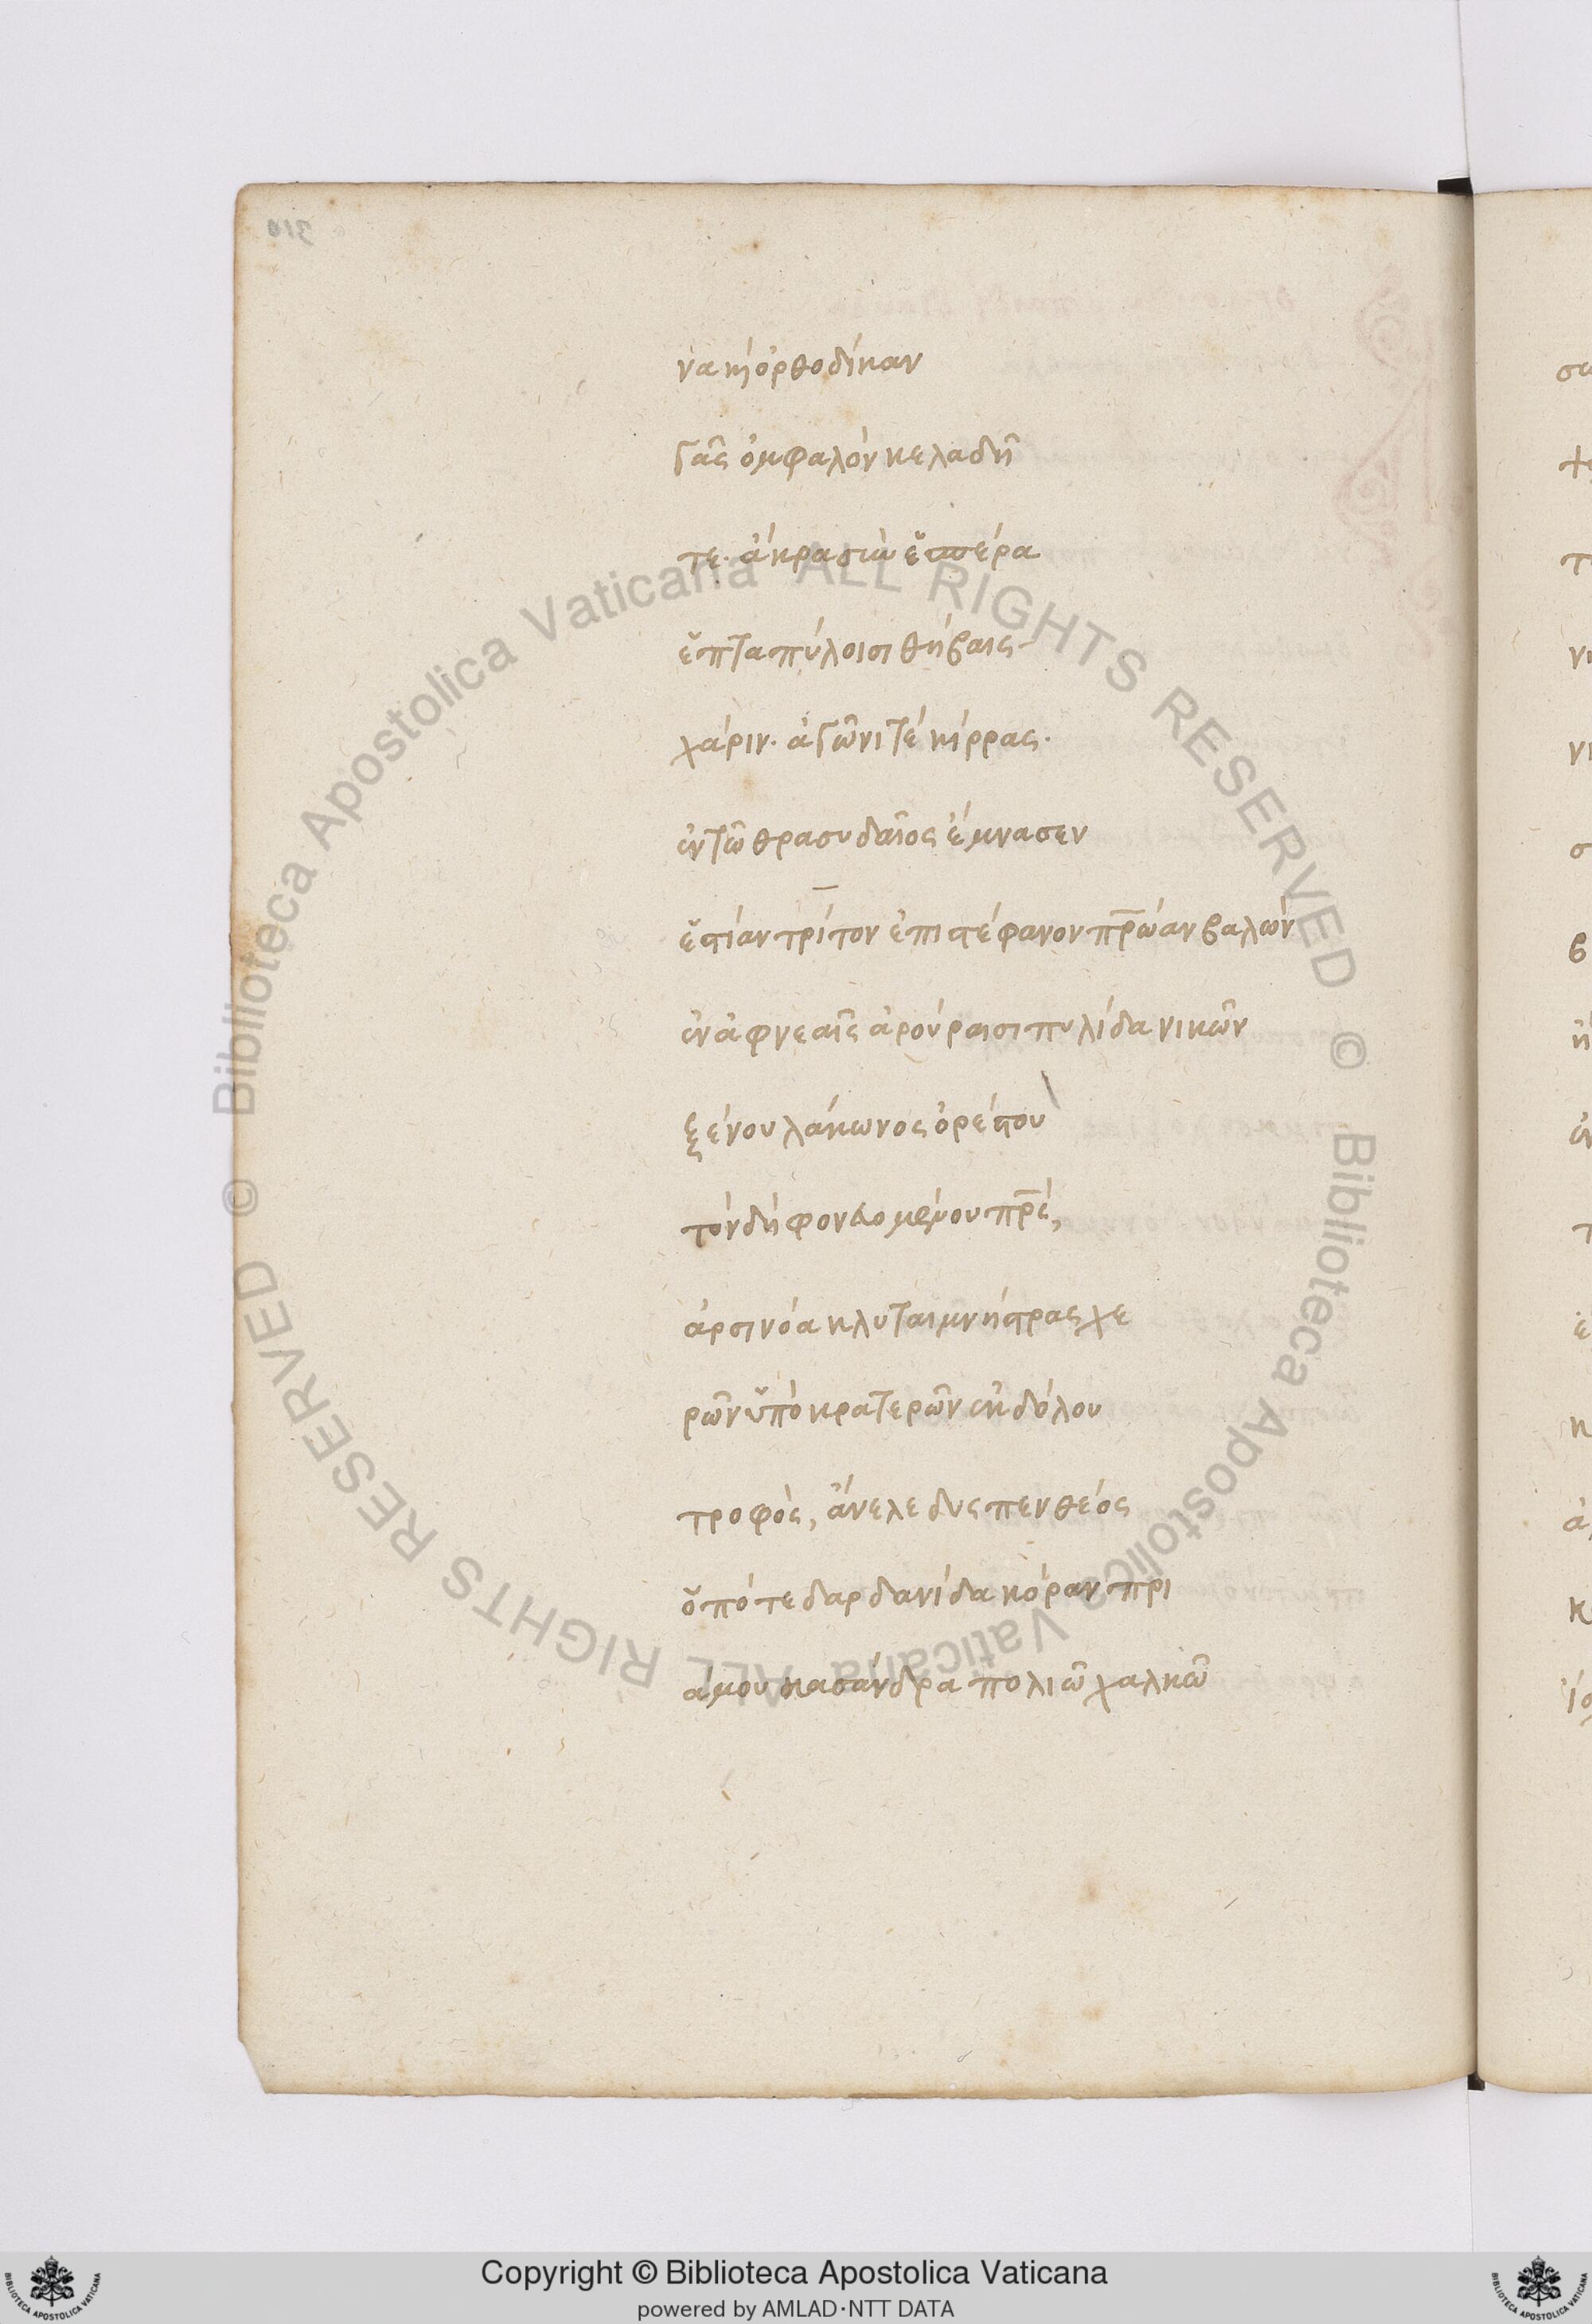 310
να κὴ ὀρθοδίκαν
γᾶς ὀμφαλὸν κελαδῆ
τε· ἄκρα σὺν ἑσπέρα
ἑπταπύλοισι θήβαις
χάριν· ἀγῶνι τέ κίρρας·
ἐν τῶ θρασυδαῖος ἔμνασεν
ἑστίαν τρίτον ἐπι στέφανον πρώαν βαλὼν
ἐν ἀφνεαῖς ἀρούραισι πυλάδα νικῶν
ξένου λάκωνος ὀρέστου
τὸν δὴ φονευομένου πρς,
ἀρσινόα κλυταιμνήστρας χε
ρῶν ὑπὸ κρατερῶν ἐκ δόλου
τροφὸς, ἄνελε δυσπενθέος
ὁπότε δαρδανίδα κόραν πρι
άμου κασάνδρα πολιῶ χαλκῶ
Biblioteca Apostolica Vaticana ALL RIGHTS RESERVED © Biblioteca Apostolica Vaticana ALL RIGHTS RESERVED ©
Copyright © Biblioteca Apostolica Vaticana
powered by AMLAD·NTT DATA
BIBLIOTECA APOSTOLICA VATICANA
BIBLIOTECA APOSTOLICA VATICANA